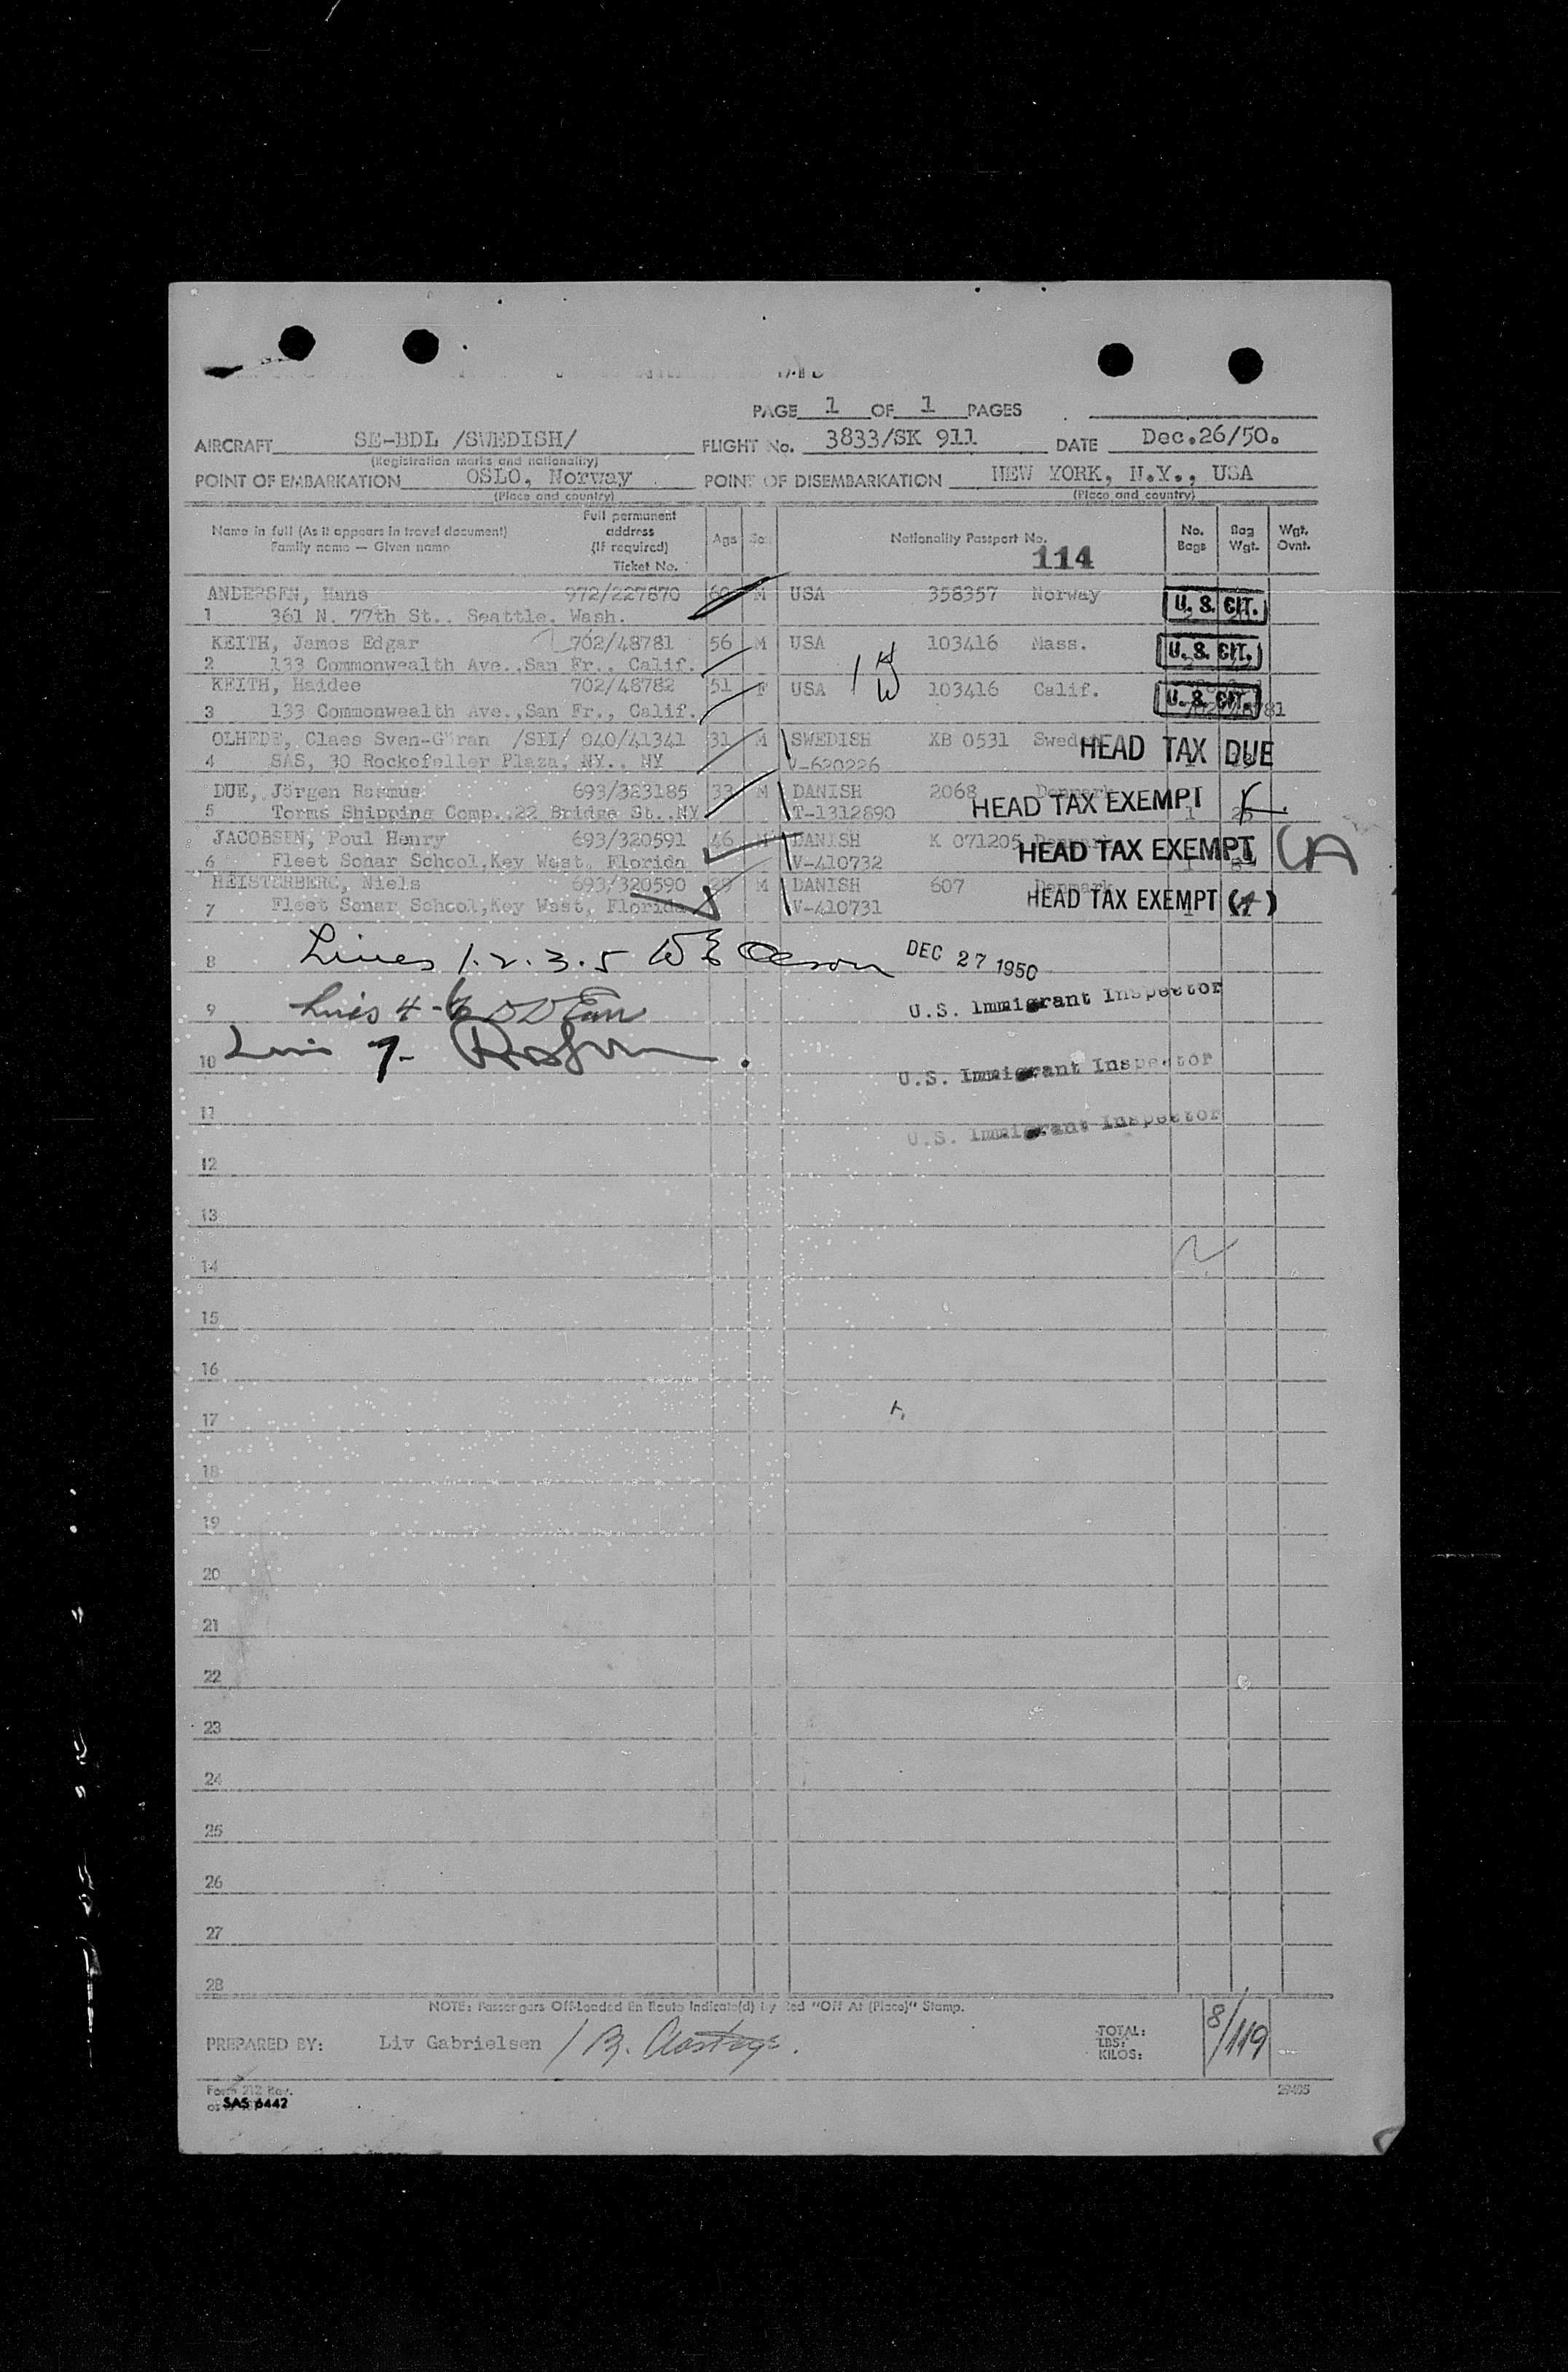 PAGE 1 OF 1 PAGES
AIRCRAFT SE-BDL /SWEDISH/ FLIGHT No. 3833/SK 911 DATE Dec.26/50.
(Registration marks and nationality)
POINT OF EMBARKATION OSLO, Norway POINT OF DISEMBARKATION NEW YORK, N.Y., USA
(Place and country) (Place and country)
Name in full (As it appears in travel document) Family name — Given name Full permanent address (If required) Ticket No. Age Sex Nationality Passport No. No. Bags Bag Wgt. Wgt. Ovnt.
114
ANDERSEN, Hans 972/227870 60 M USA 358357 Norway U. S. CIT.
1 361 N. 77th St., Seattle, Wash.
KEITH, James Edgar 702/48781 56 M USA 103416 Mass. U. S. CIT.
2 133 Commonwealth Ave.,San Fr., Calif.
KEITH, Haidee 702/48782 51 F USA 103416 Calif. U. S. CIT.
3 133 Commonwealth Ave.,San Fr., Calif.
OLHEDE, Claes Sven-Göran /SII/ 040/41341 31 M SWEDISH XB 0531 HEAD TAX DUE
4 SAS, 30 Rockefeller Plaza, NY., NY V-620226
DUE, Jörgen Rasmus 693/323185 33 M DANISH 2068 Denmark HEAD TAX EXEMPT
5 Torms Shipping Comp.,22 Bridge St.,NY T-1312890 1
JACOBSEN, Poul Henry 693/320591 46 M DANISH K 071205 Denmark HEAD TAX EXEMPT
6 Fleet Sonar School,Key West, Florida V-410732
HEISTERBERG, Niels 693/320590 29 M DANISH 607 Denmark HEAD TAX EXEMPT
7 Fleet Sonar School,Key West, Florida V-410731
8 Lines 1.2.3.5 W E Olson DEC 27 1950
9 Lines 4-6 U.S. Immigrant Inspector
10 Line 7- U.S. Immigrant Inspector
11 U.S. Immigrant Inspector
12
13
14
15
16
17
18
19
20
21
22
23
24
25
26
27
28
NOTE: Passengers Off-Loaded En Route Indicate(d) by Red "Off At (Place)" Stamp.
PREPARED BY: Liv Gabrielsen TOTAL: LBS: KILOS: 8/119
Form 212 Rev.
SAS 6442